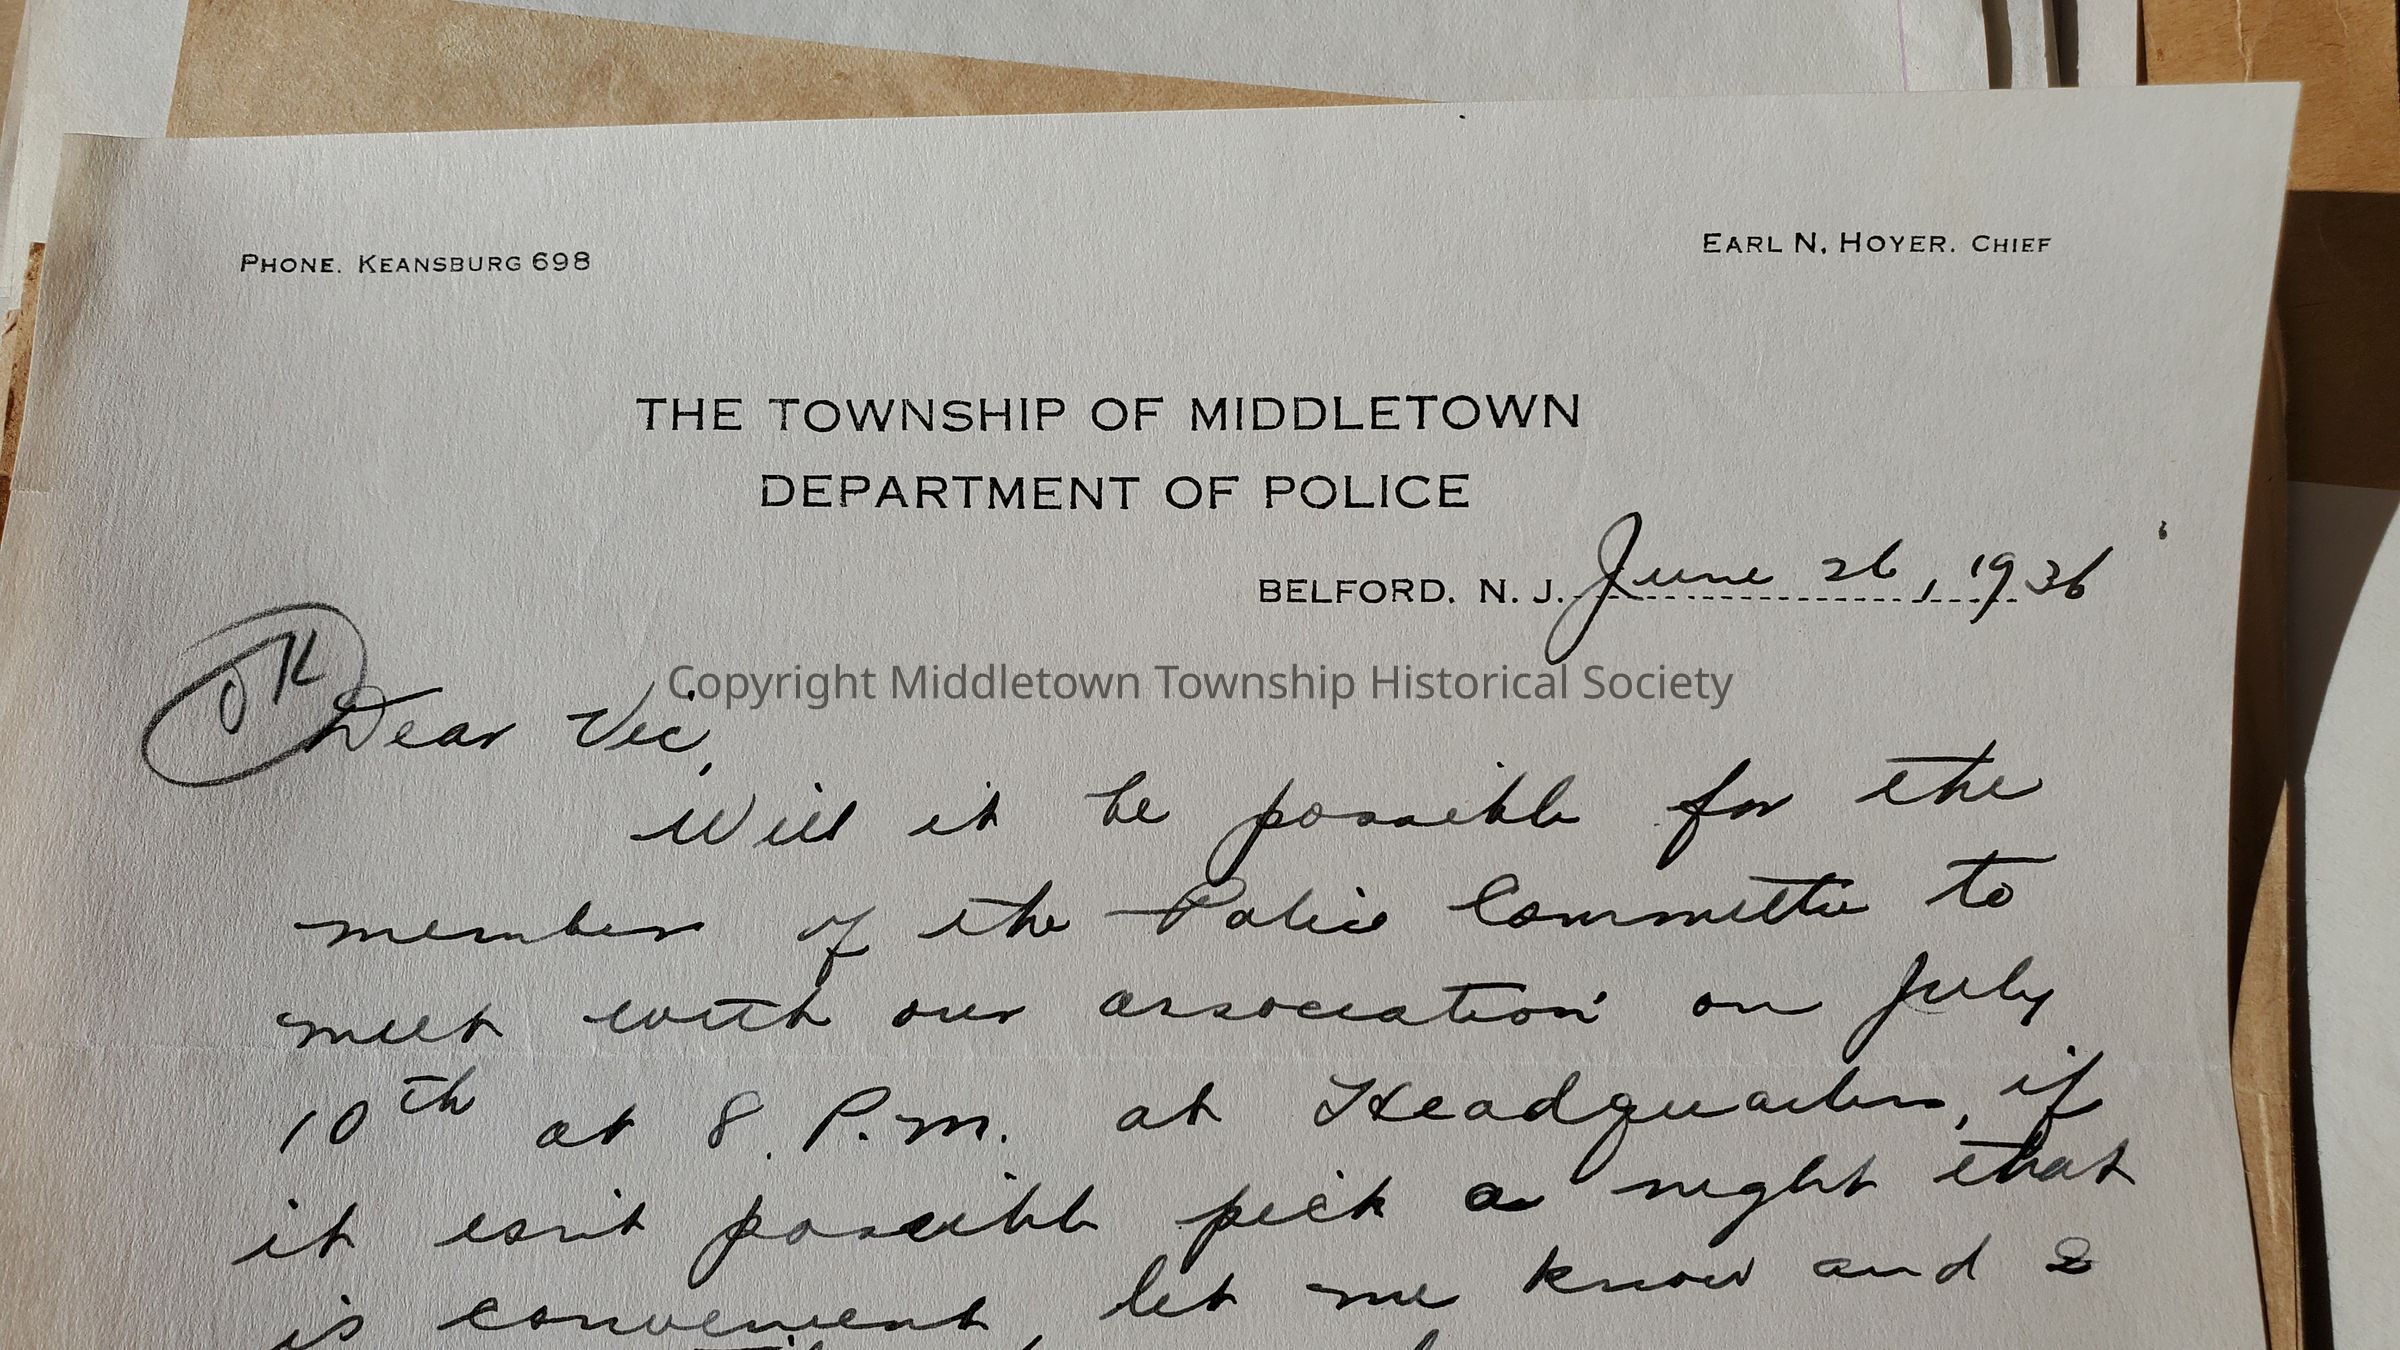 PHONE. KEANSBURG 698
EARL N. HOYER. CHIEF
THE TOWNSHIP OF MIDDLETOWN
DEPARTMENT OF POLICE
BELFORD. N. J. June 26, 1936
OK
Copyright Middletown Township Historical Society
Dear Vic,
Will it be possible for the
members of the Police Committee to
meet with our association on July
10th at 8 P.M. at Headquarters, if
it isn't possible pick a night that
is convenient, let me know and I